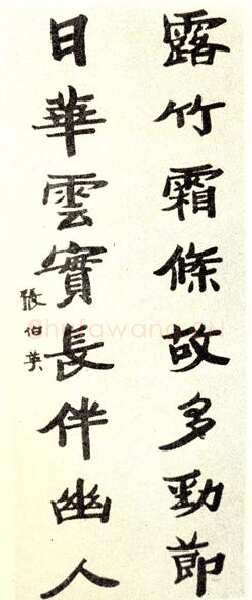 露竹霜條故多勁節
日華雲實長伴幽人
張伯英